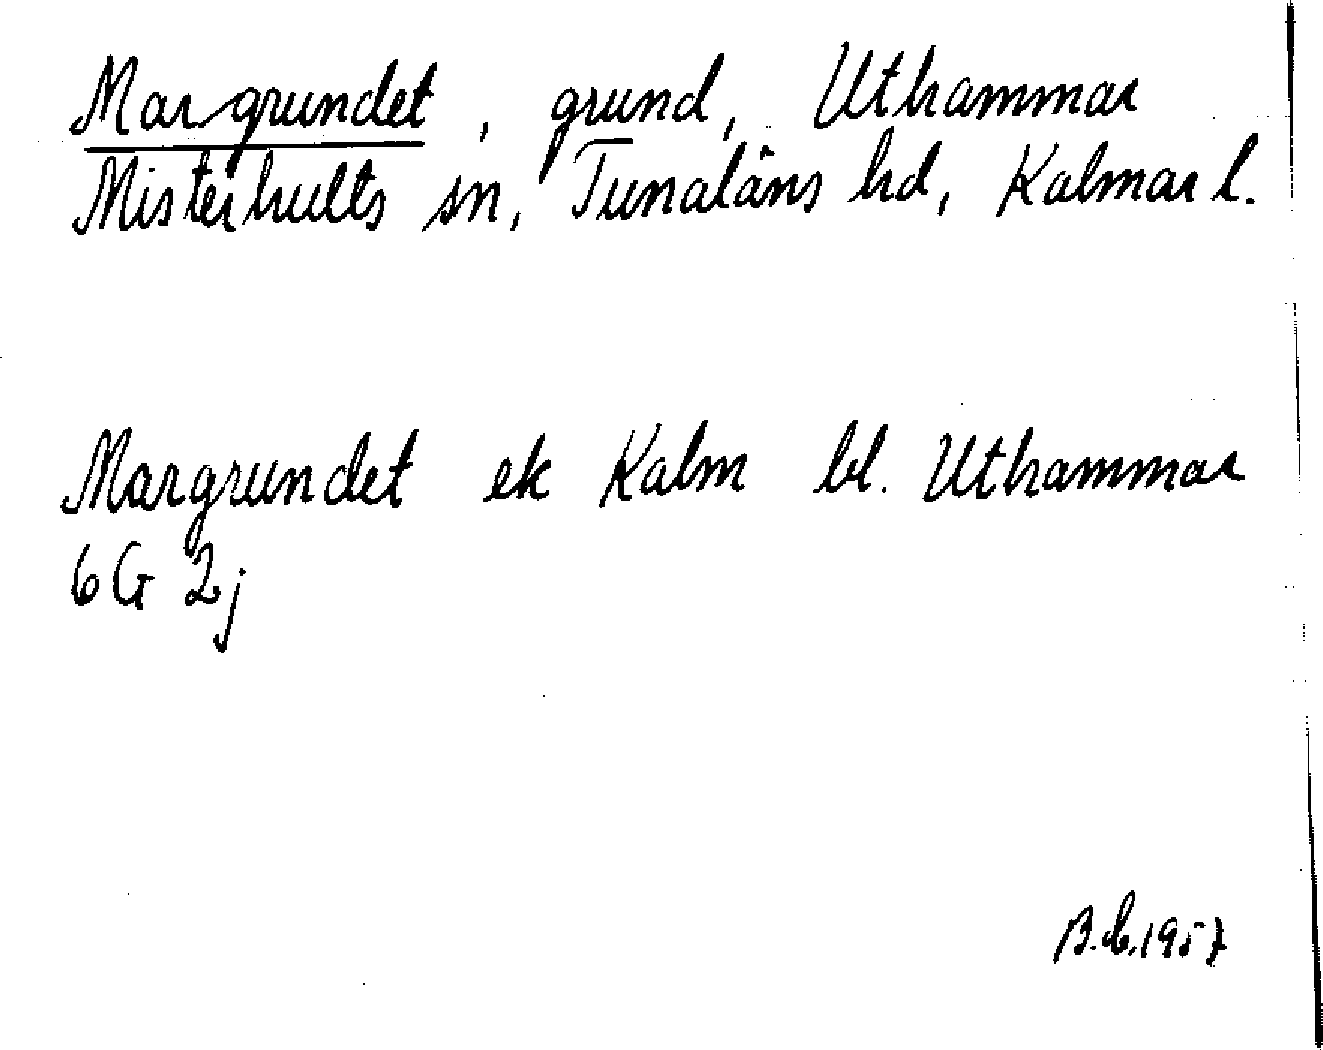 Margrundet, grund, Uthammar
Misterhults sn, Tunaläns hd, Kalmar l.
Margrundet ek Kalm bl. Uthammar
6G 2j
1957